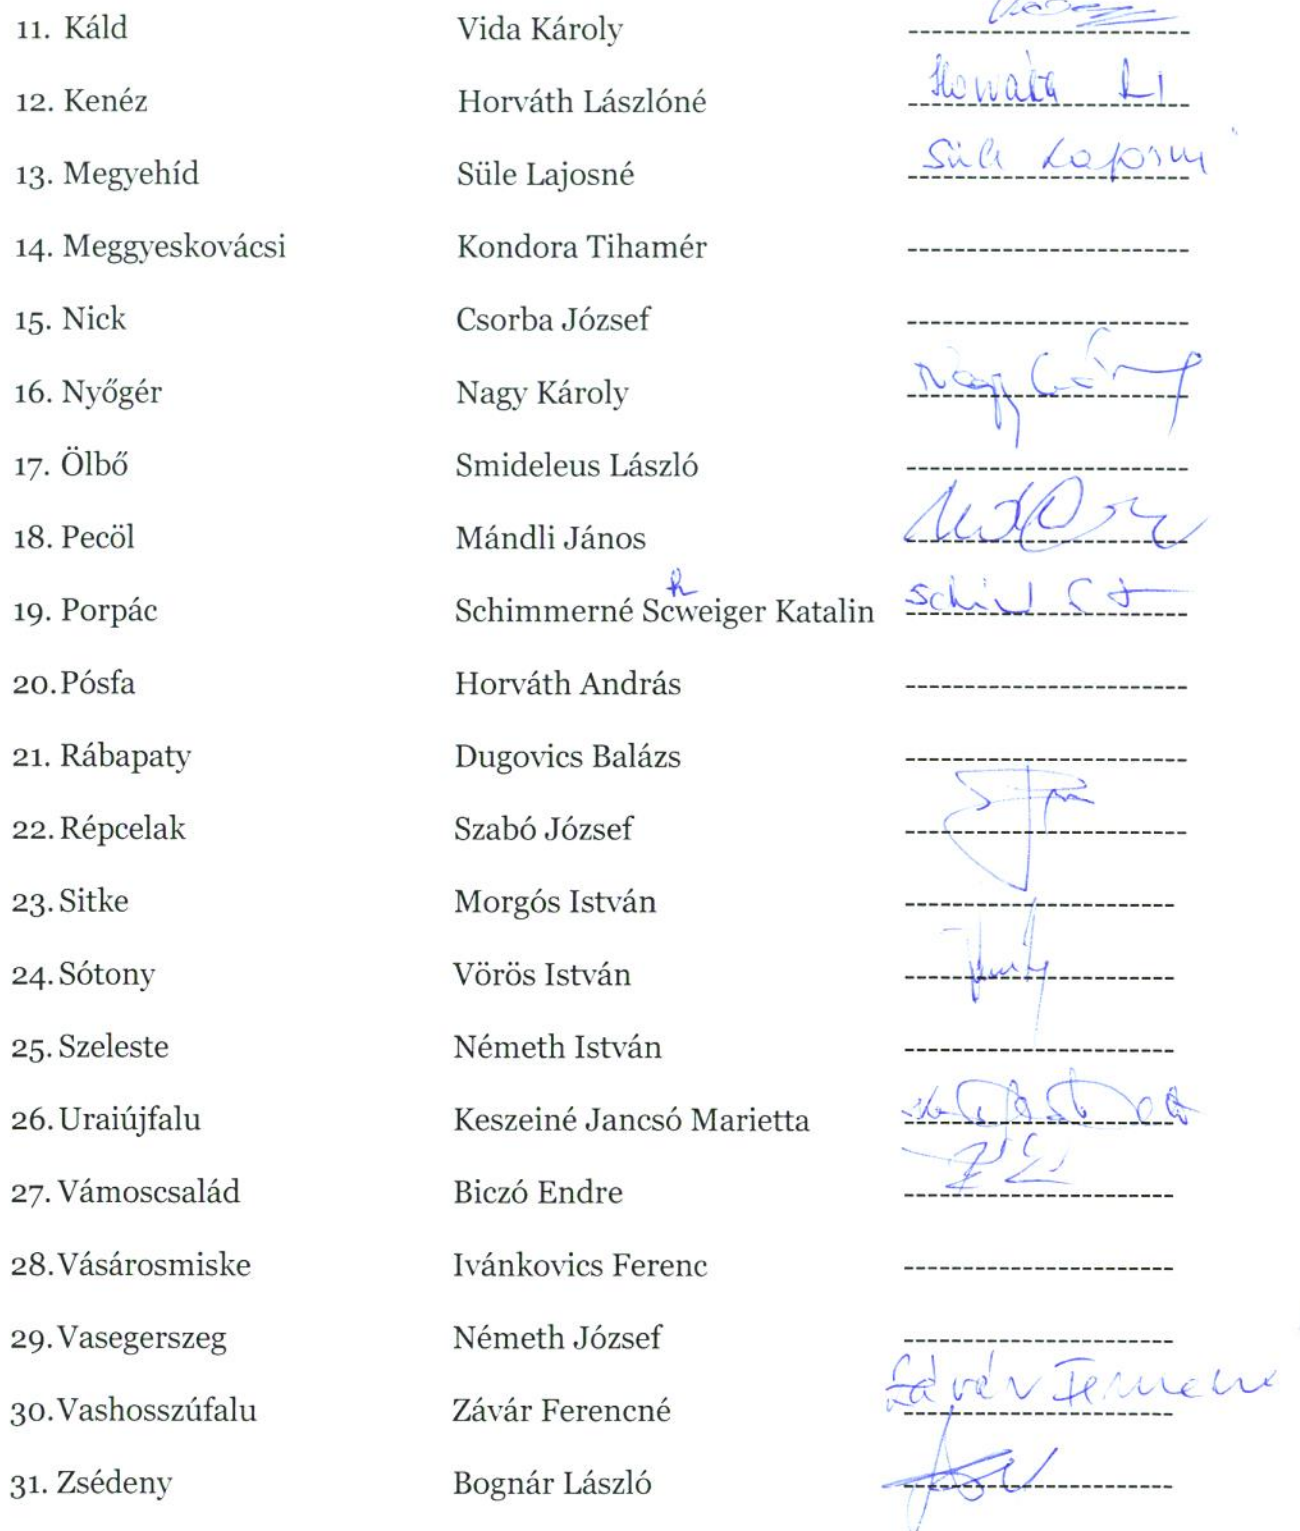 11. Káld Vida Károly
12. Kenéz Horváth Lászlóné
13. Megyehíd Süle Lajosné Süle Lajosné
14. Meggyeskovácsi Kondora Tihamér
15. Nick Csorba József
16. Nyőgér Nagy Károly Nagy Károly
17. Ölbő Smideleus László
18. Pecöl Mándli János
h
19. Porpác Schimmerné Scweiger Katalin
20. Pósfa Horváth András
21. Rábapaty Dugovics Balázs
22. Répcelak Szabó József
23. Sitke Morgós István
24. Sótony Vörös István
25. Szeleste Németh István
26. Uraiújfalu Keszeiné Jancsó Marietta
27. Vámoscsalád Biczó Endre
28. Vásárosmiske Ivánkovics Ferenc
29. Vasegerszeg Németh József
30. Vashosszúfalu Závár Ferencné Závár Ferencné
31. Zsédeny Bognár László